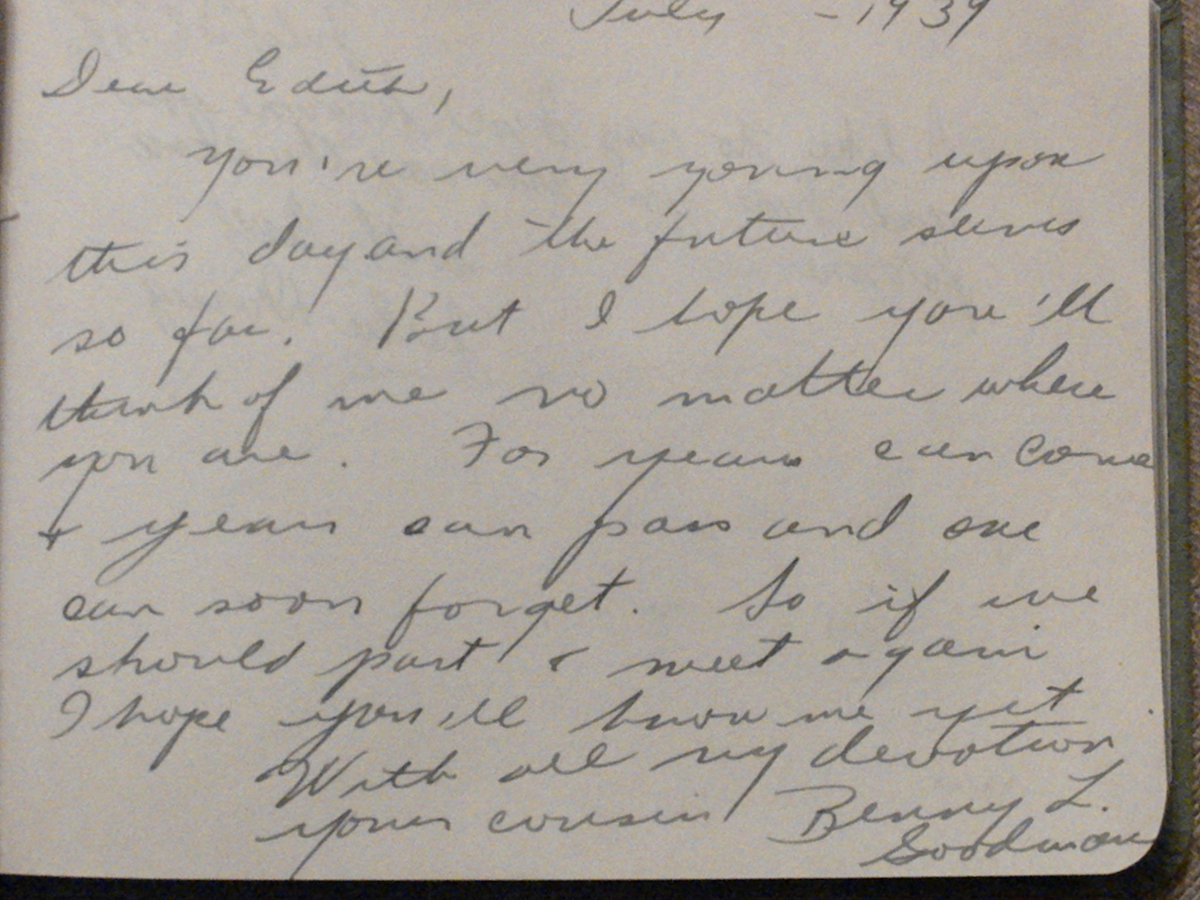 July - 1939
Dear Edith,
You're very young upon
this day and the future seems
so far. But I hope you'll
think of me no matter where
you are. For years can come
& years can pass and one
can soon forget. So if we
should part & meet again
I hope you'll know me yet
With all my devotion
your cousin Benny L.
Goodman